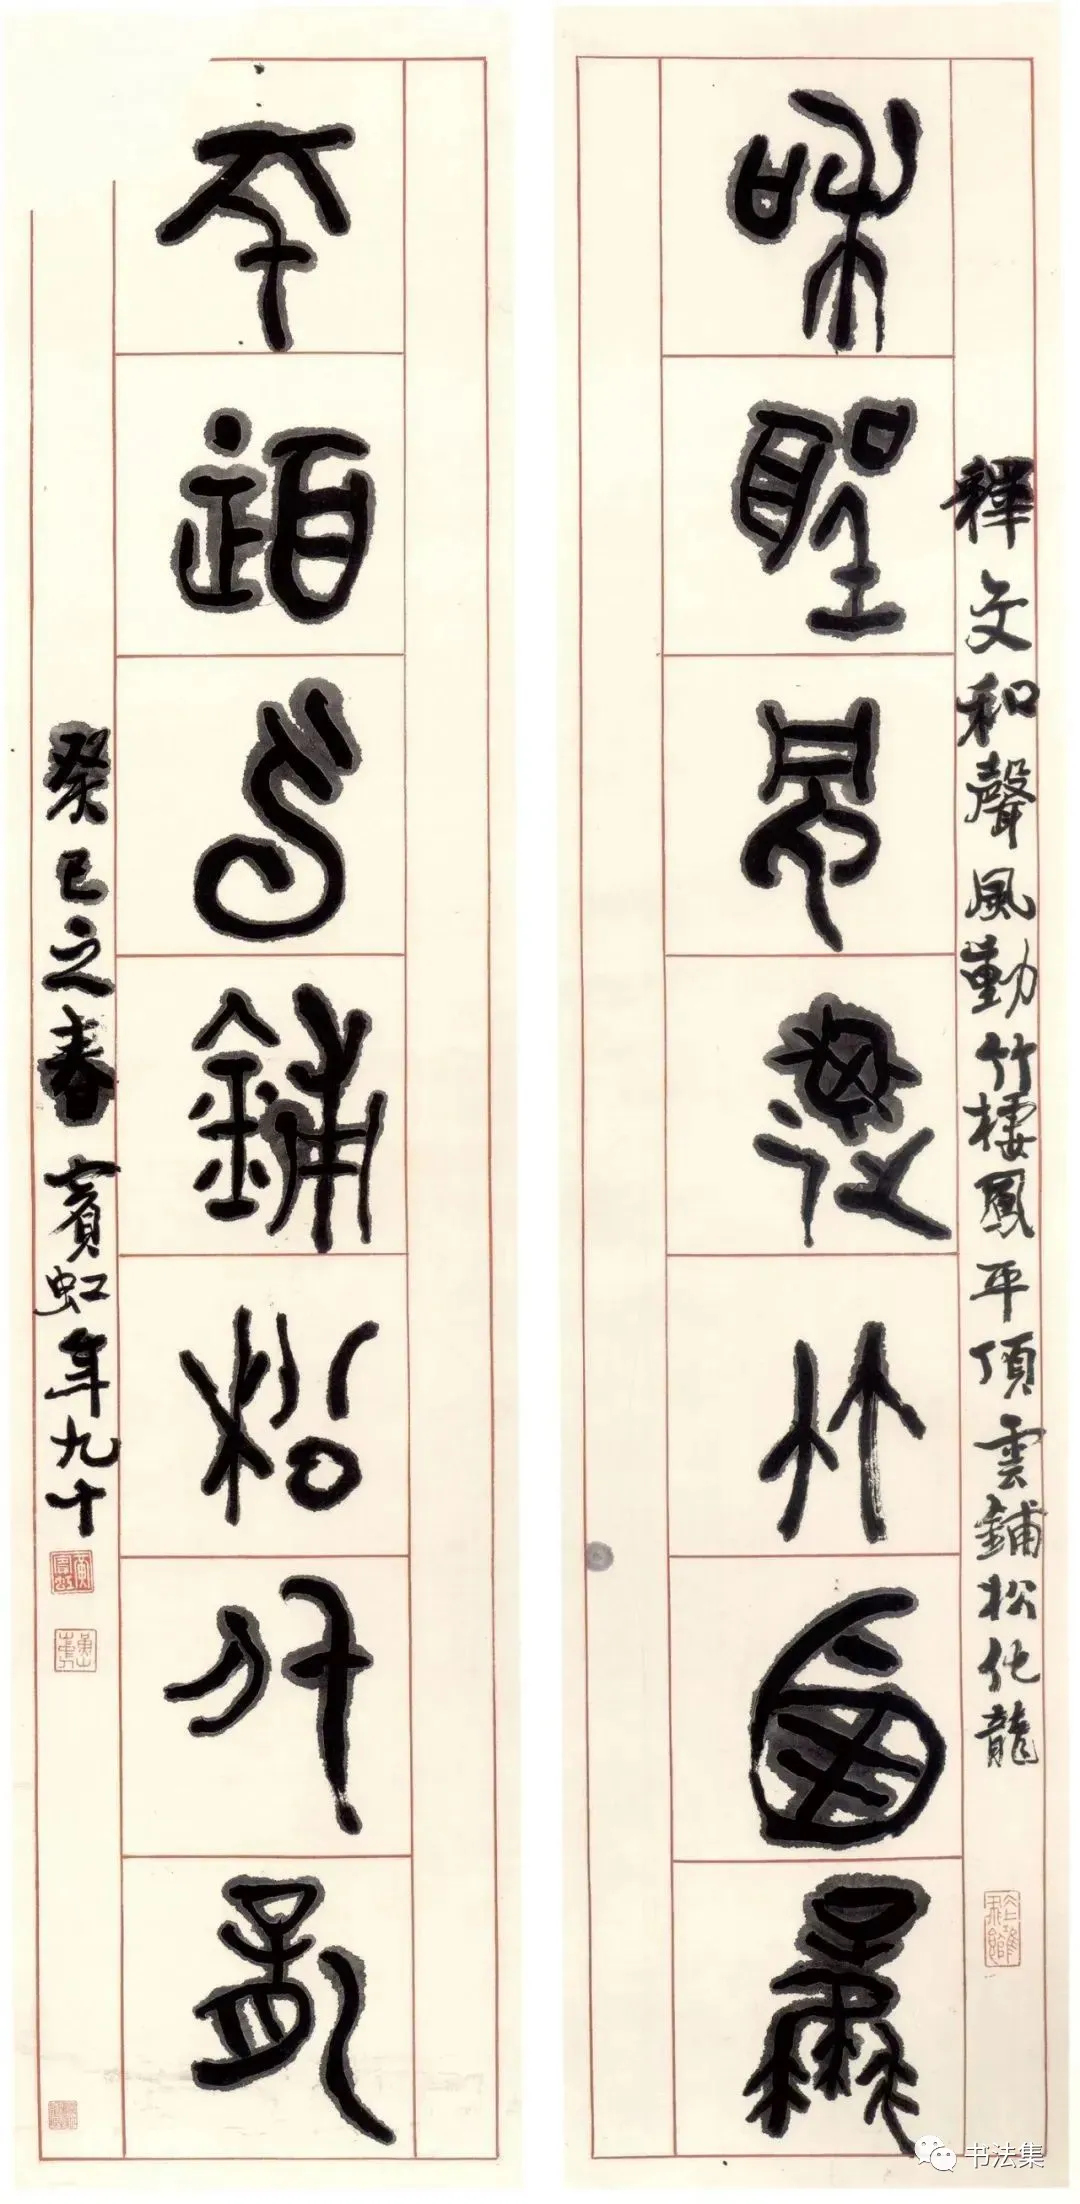 和聲風動竹棲鳳
釋文和聲風動竹棲鳳平頂雲鋪松化龍
平頂雲鋪松化龍
癸巳之春賓虹年九十
书法集